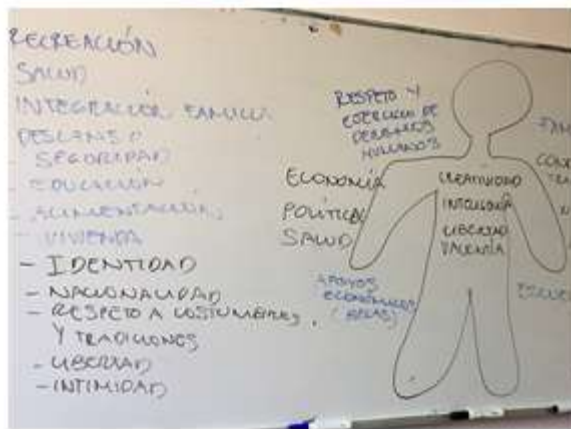 RECREACIÓN
SALUD
INTEGRACIÓN FAMILIA
DESCANSO
- SEGURIDAD
- EDUCACIÓN
- ALIMENTACIÓN
- VIVIENDA
- IDENTIDAD
- NACIONALIDAD
- RESPETO A COSTUMBRES,
Y TRADICIONES
- LIBERTAD
- INTIMIDAD
RESPETO Y
EJERCICIO DE
DERECHOS
HUMANOS
ECONOMÍA
POLÍTICA
SALUD
APOYOS
ECONÓMICOS
(BECAS)
CREATIVIDAD
INTELIGENCIA
LIBERTAD
VALENTÍA